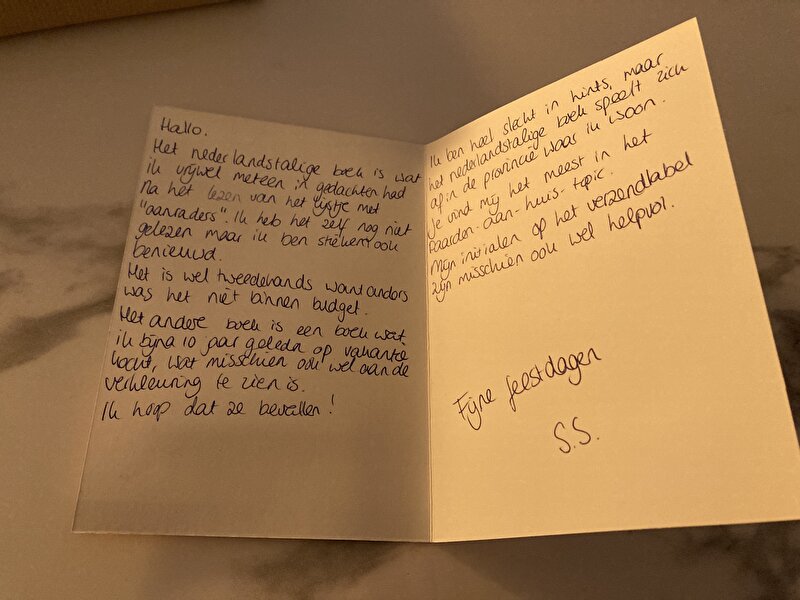 Hallo.
Het nederlandstalige boek is wat
ik vrijwel meteen in gedachten had
na het lezen van het lijstje met
"aanraders". Ik heb het zelf nog niet
gelezen maar ik ben stiekem ook
benieuwd.
Het is wel tweedehands want anders
was het niet binnen budget.
Het andere boek is een boek wat
ik bijna 10 jaar geleden op vakantie
kocht, wat misschien ook wel aan de
verkleuring te zien is.
Ik hoop dat ze bevallen!
Ik ben heel slecht in hints, maar
het nederlandstalige boek speelt zich
af in de provincie waar ik woon.
Je vind mij het meest in het
paarden-aan-huis-topic.
Mijn initialen op het verzendlabel
zijn misschien ook wel helpvol.
Fijne feestdagen
S.S.